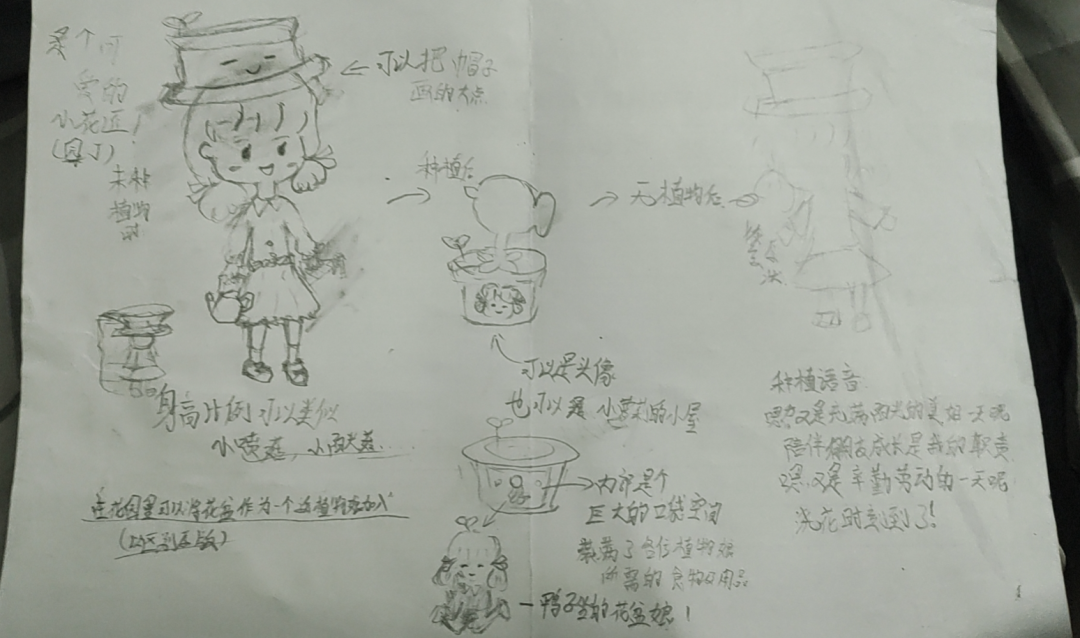 是个可
爱的
小花匠！
（园丁）
未种
植物
时
可以把帽子
画的大点
种植后
无植物后
身高比例可以类似
小喷菇，小阳光菇...
在花园里可以将花盆作为一个植物添加
（以区别原版）
可以是头像
也可以是小萝莉的小屋
内部是个
巨大的口袋空间
装满了各位植物娘
所需的食物及用品
鸭子坐的花盆娘！
种植语音
嗯又是充满阳光的美好一天呢
陪伴朋友成长是我的职责
嘿又是辛勤劳动的一天呢
浇花时刻到了！